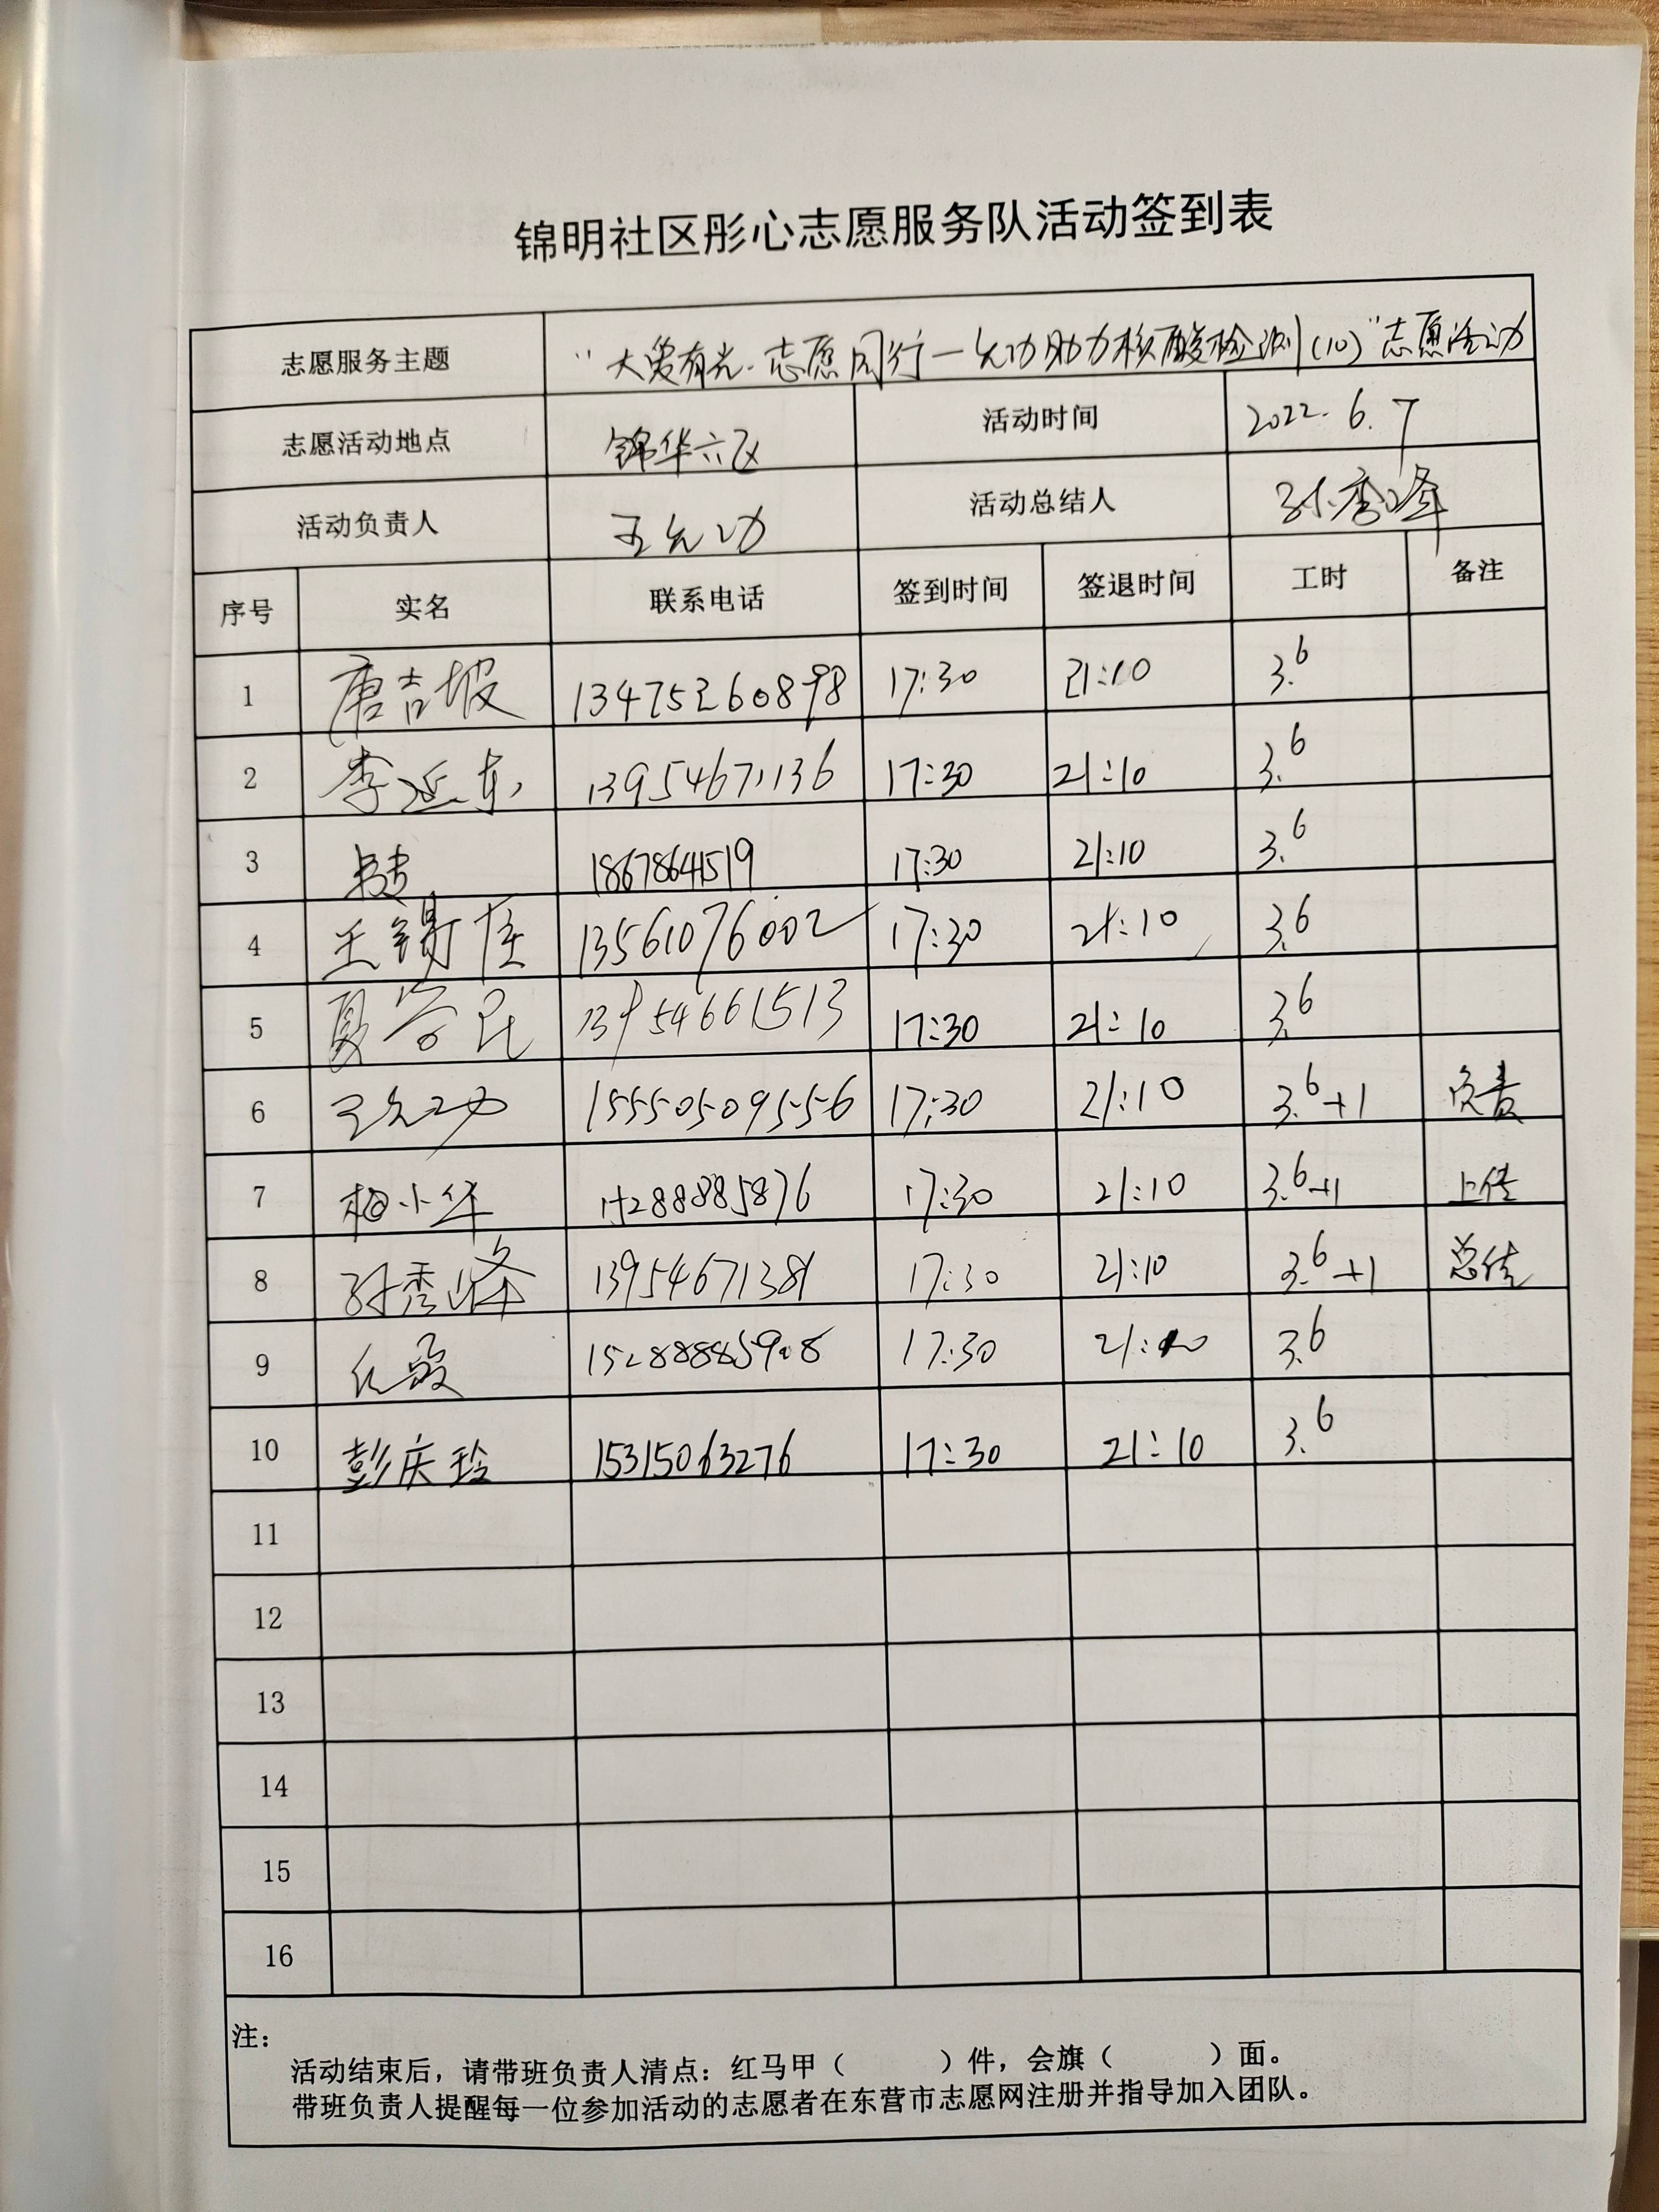 锦明社区彤心志愿服务队活动签到表
志愿服务主题 “大爱有光·志愿同行—允功助力核酸检测(10)”志愿活动
志愿活动地点 锦华六区 活动时间 2022.6.7
活动负责人 王允功 活动总结人 孙秀峰
序号 实名 联系电话 签到时间 签退时间 工时 备注
1 唐吉坡 13475260898 17:30 21:10 3.6
2 李延东 13954671136 17:30 21:10 3.6
3 18678641519 17:30 21:10 3.6
4 王锡 13561076002 17:30 21:10 3.6
5 夏 13954661513 17:30 21:10 3.6
6 王允功 15550509556 17:30 21:10 3.6+1 负责
7 梅小华 15288885876 17:30 21:10 3.6+1 上传
8 孙秀峰 13954671381 17:30 21:10 3.6+1 总结
9 17:30 21:10 3.6
10 彭庆玲 15315063276 17:30 21:10 3.6
11
12
13
14
15
16
注：
活动结束后，请带班负责人清点：红马甲（ ）件，会旗（ ）面。
带班负责人提醒每一位参加活动的志愿者在东营市志愿网注册并指导加入团队。